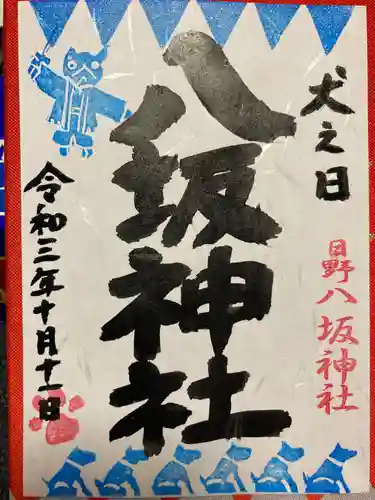 犬之日
日野八坂神社
八坂神社
令和三年十月十一日